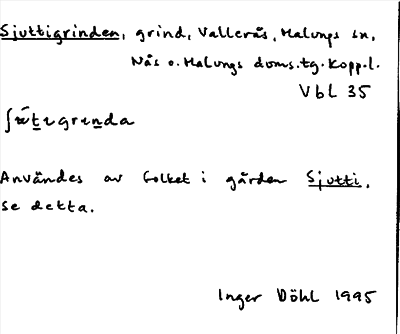 Sjuttigrinden, grind, Vallerås, Malungs sn,
Nås o. Malungs doms.tg. Koppl.
Vbl 35
Användes av folket i gården Sjutti,
se detta.
Inger Döhl 1995